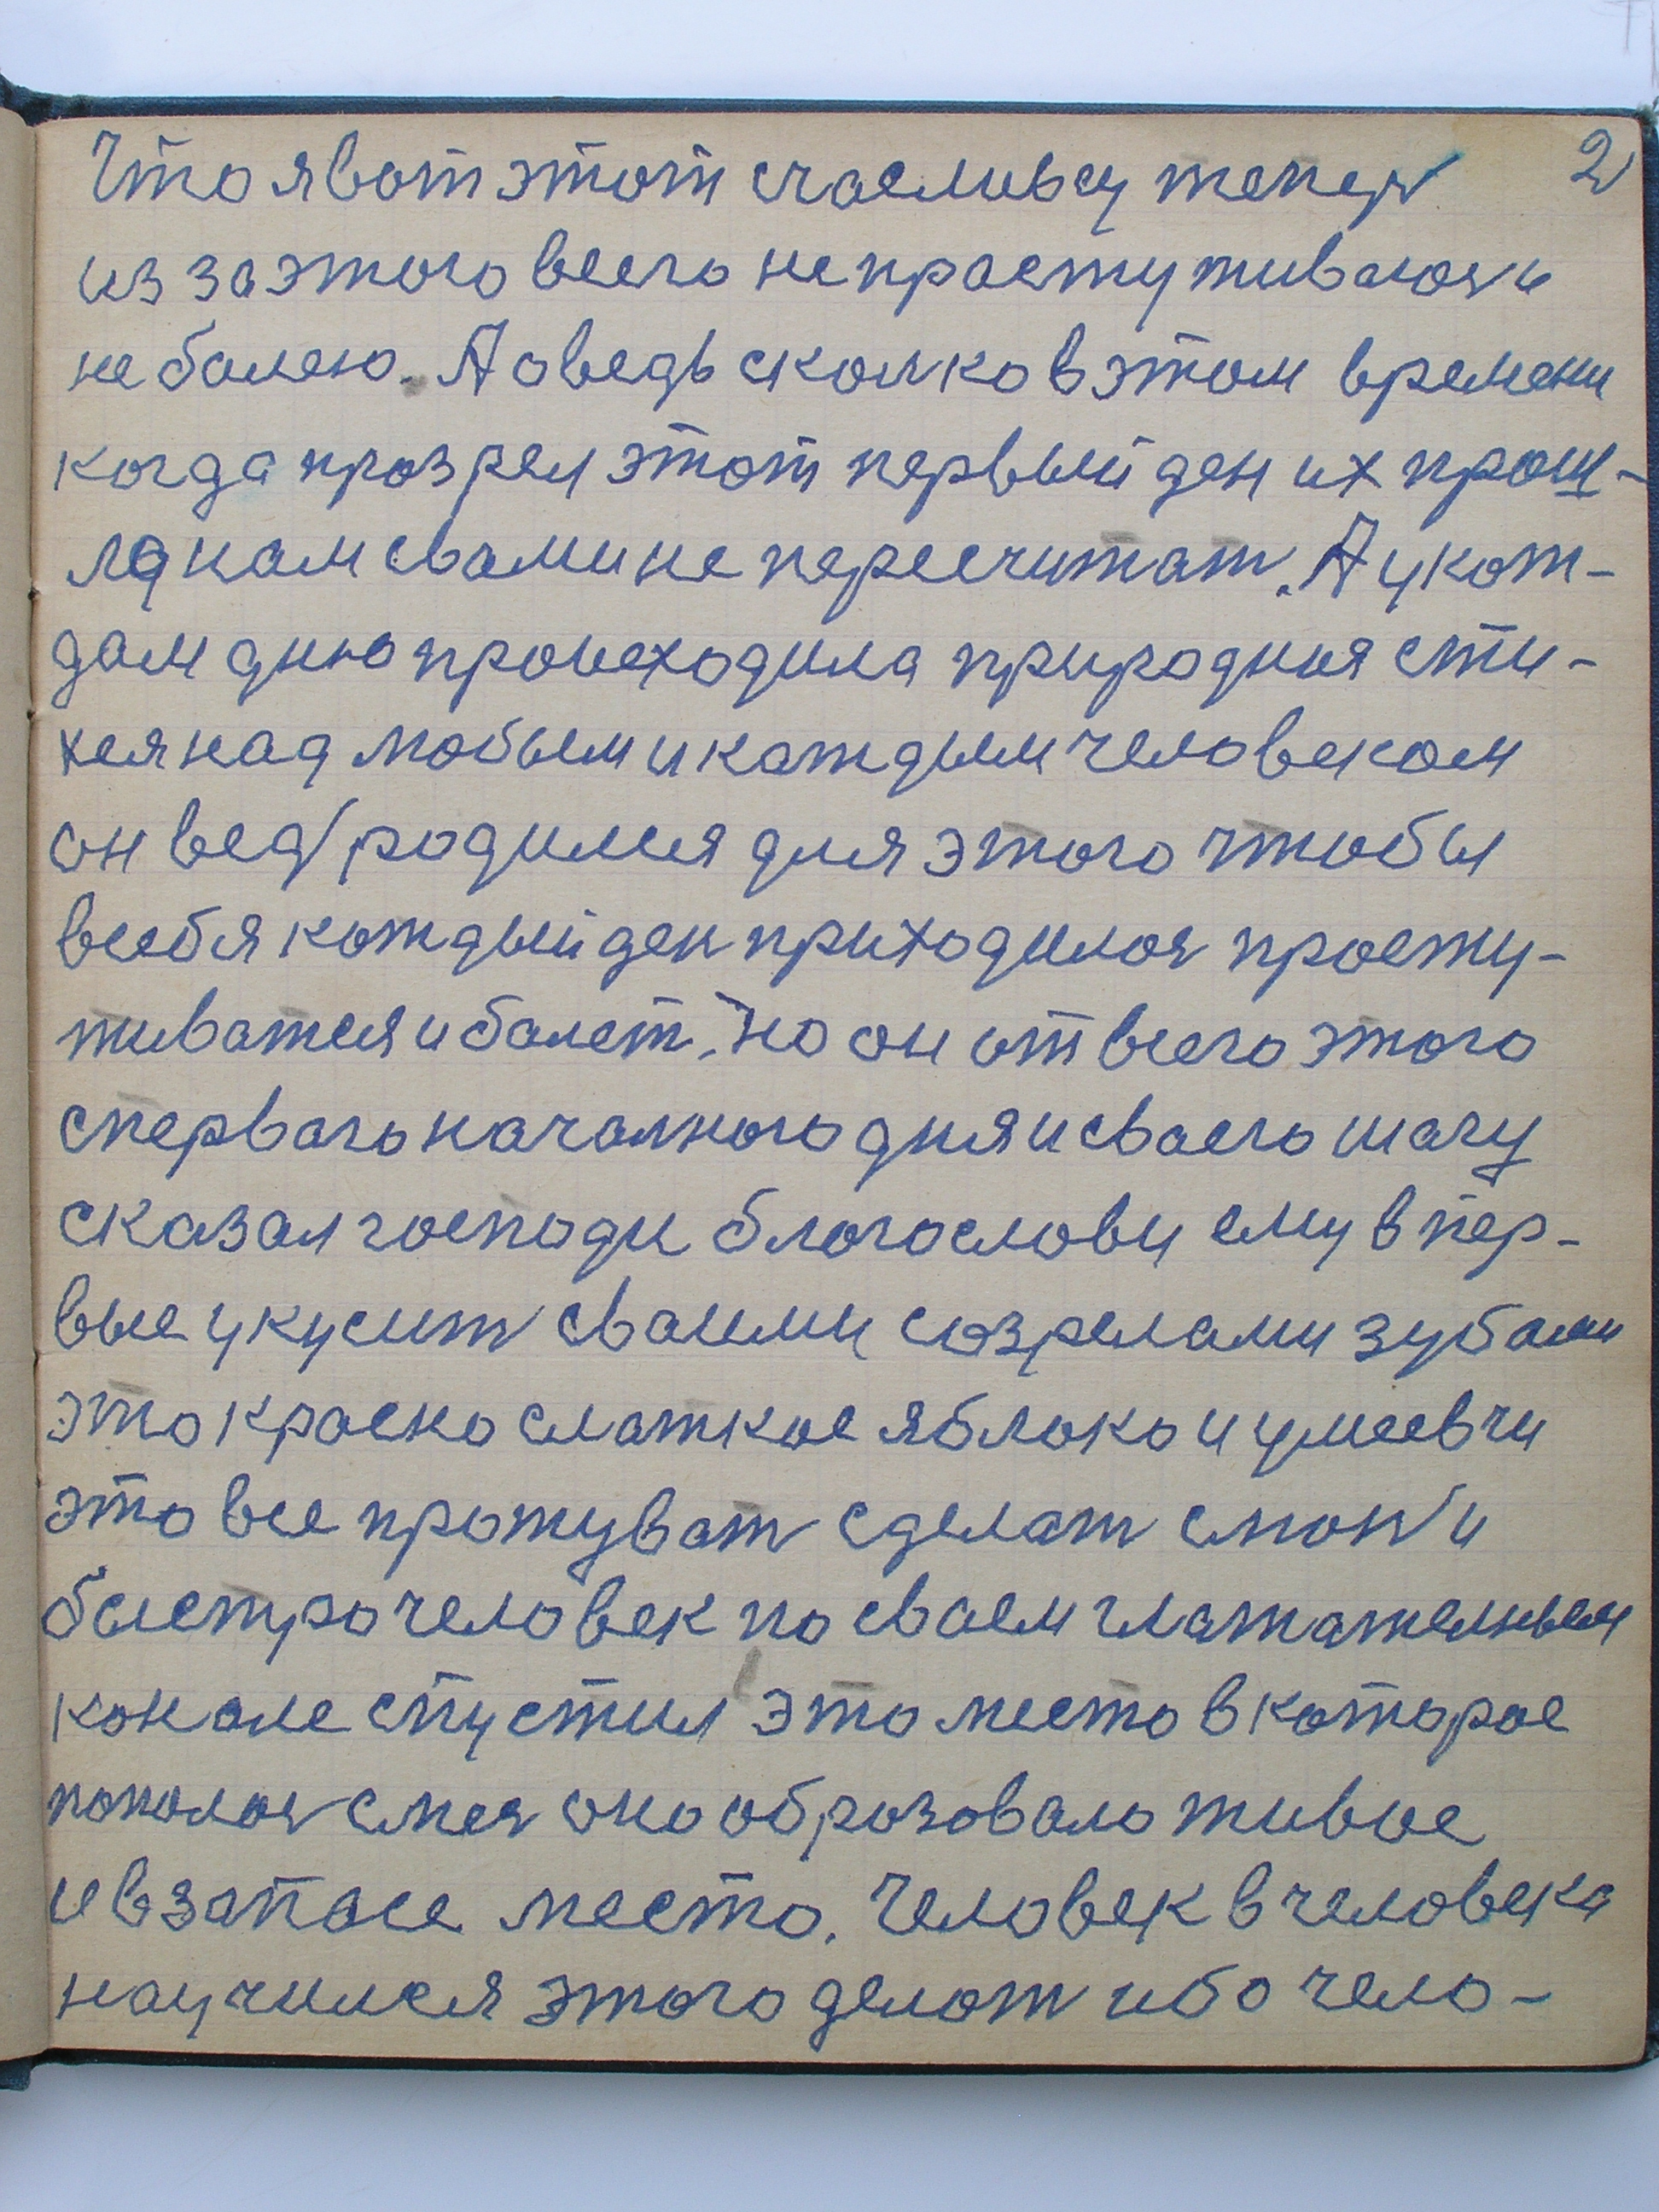 2
Что я вот этот счасливец теперь
из за этого всего не прастуживаюсь и
не балею. А оведь сколко в этом времени
когда прозрел этот первый ден их прош-
ла нам свами не пересчитат. А у кот-
дам дню проиеходила природная сти-
хея над любым и каждым человеком
он вед родился для этого чтобы
в себя каждый ден приходилось просту-
живатся и балет. Но он от всего этого
с перваго начального дня и сваего шагу
сказал господи благослови ему впер-
вые укусит сваими созрелами зубами
это красно слаткое яблоко и умеевчи
это все прожуват сделат слюн и
быстро человек по сваем глатателным
канале спустил это место в которое
попалось смея оно образовало живое
и в запасе место. Человек в человека
научился этого делат ибо чело-